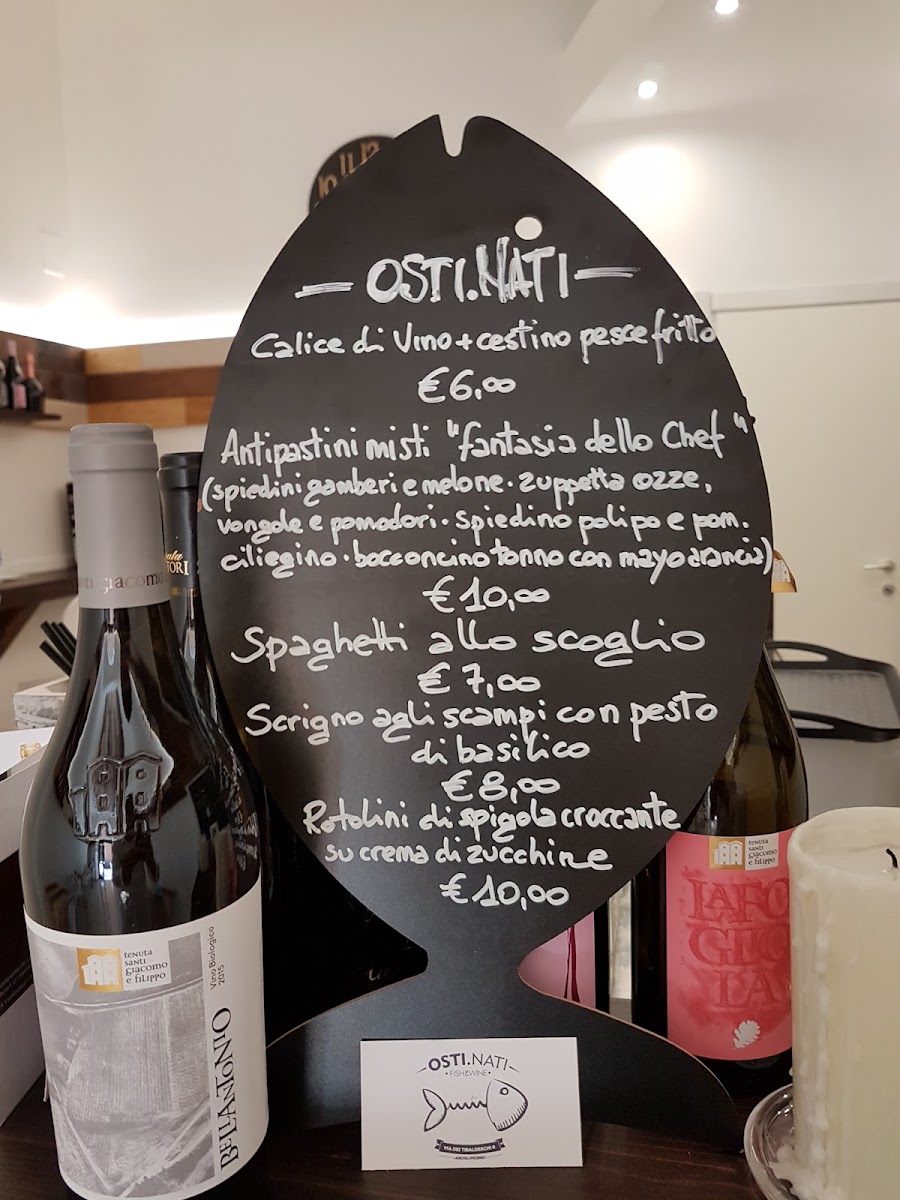 — OSTI.NATI —
Calice di Vino + cestino pesce fritto
€ 6,00
Antipastini misti "fantasia dello Chef"
(spiedini gamberi e melone · zuppetta ozze,
vongole e pomodori · spiedino polipo e pom.
ciliegino · bocconcino tonno con mayo arancia)
€ 10,00
Spaghetti allo scoglio
€ 7,00
Scrigno agli scampi con pesto
di basilico
€ 8,00
Rotolini di spigola croccante
su crema di zucchine
€ 10,00
giacomo
tenuta
santi
giacomo
e filippo
Vino Biologico
2015
BELLANTONIO
tenuta
santi
giacomo
e filippo
— OSTI.NATI —
• FISH&WINE •
VIA DEI TIBALDESCHI 8